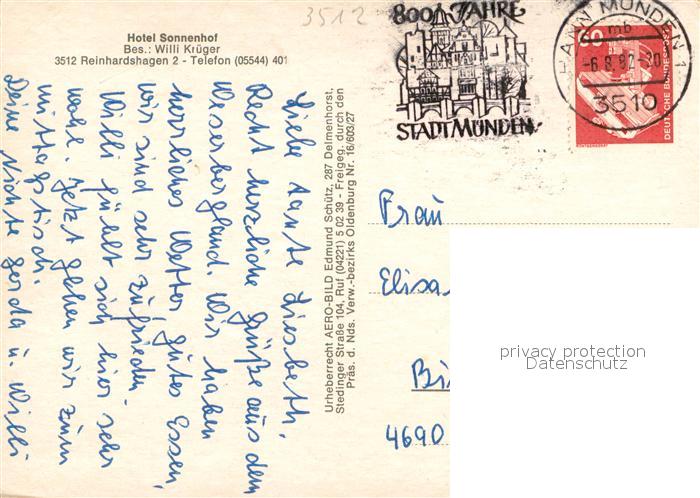 3512
Hotel Sonnenhof
Bes.: Willi Krüger
3512 Reinhardshagen 2 - Telefon (05544) 401
800 JAHRE
STADT MÜNDEN
HANN MÜNDEN 1
mb
-6.8.82-20
3510
60
DEUTSCHE BUNDESPOST
Liebe Tante Liesbeth,
Recht herzliche Grüße aus dem
Weserbergland. Wir haben
herrliches Wetter gutes Essen,
wir sind sehr zufrieden.
Willi fühlt sich hier sehr
wohl. Jetzt gehen wir zum
Mittagstisch.
Deine Nichte Gerda u. Willi
Urheberrecht AERO-BILD Edmund Schütz, 287 Delmenhorst,
Stedinger Straße 104, Ruf (04221) 5 02 39 - Freigeg. durch den
Präs. d. Nds. Verw.-bezirks Oldenburg Nr. 16/603/27
Frau
Elisa
Bi
4690
privacy protection
Datenschutz